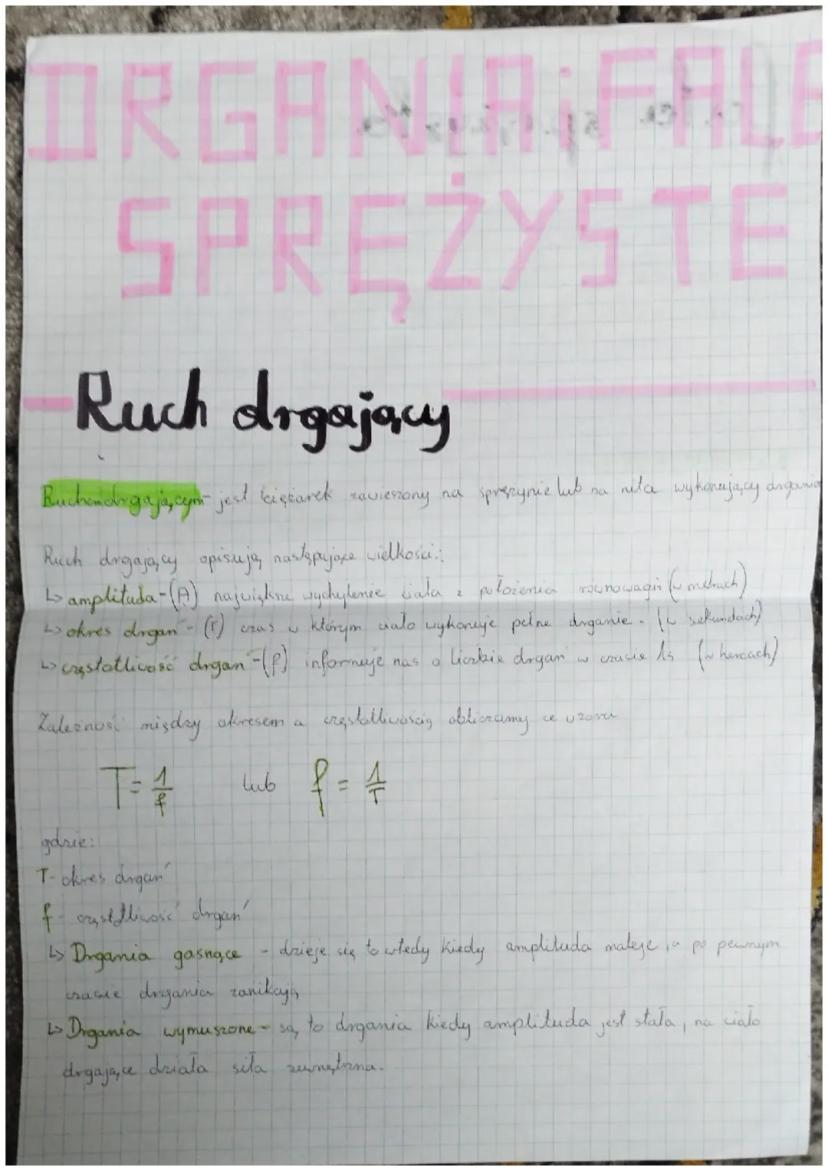 DRGANIA i FALE
SPRĘŻYSTE
Ruch drgający
Ruchem drgającym - jest ciężarek zawieszony na sprężynie lub na nitce wykonujący drgania
Ruch drgający opisują następujące wielkości:
↳ amplituda - (A) największe wychylenie ciała z położenia równowagi (w metrach)
↳ okres drgań - (T) czas w którym ciało wykonuje pełne drganie. (w sekundach)
↳ częstotliwość drgań - (f) informuje nas o liczbie drgań w czasie 1s (w hercach)
Zależność między okresem a częstotliwością obliczamy ze wzoru
T = 1/f lub f = 1/T
gdzie:
T - okres drgań
f - częstotliwość drgań
↳ Drgania gasnące - dzieje się to wtedy kiedy amplituda maleje, a po pewnym
czasie drgania zanikają
↳ Drgania wymuszone - są to drgania kiedy amplituda jest stała, na ciało
drgające działa siła zewnętrzna.